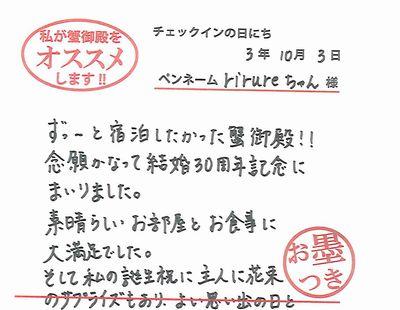 私が蟹御殿を
オススメ
します!!
チェックインの日にち
3年10月3日
ペンネーム rirureちゃん 様
ずっーと宿泊したかった蟹御殿!!
念願かなって結婚30周年記念に
まいりました。
素晴らしいお部屋とお食事に
大満足でした。
お墨
つき
そして私の誕生祝に主人に花束
のサプライズもあり、よい思い出の日と